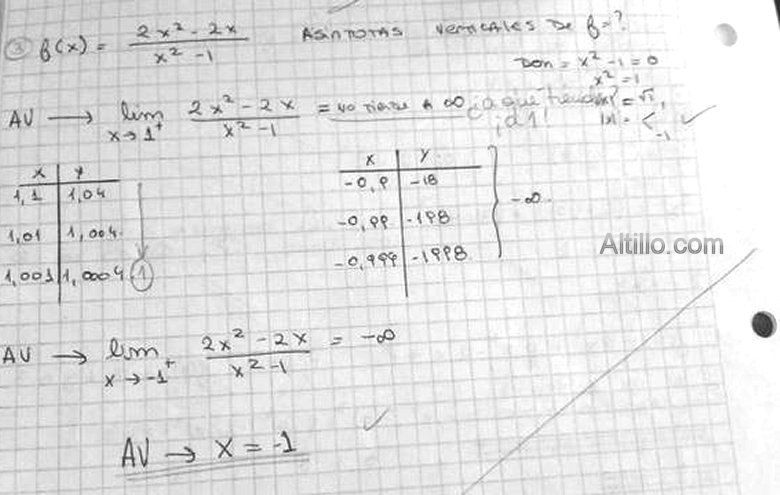 ③ f(x) = (2x² - 2x)/(x² - 1) ASINTOTAS VERTICALES DE f = ?
Dom = x² - 1 = 0
x² = 1
AV → lim x→1⁺ (2x² - 2x)/(x² - 1) = NO TIENDE A ∞ ¿a qué tiende?
¡a 1!
|x| = < -1 ✓
x | y
1,1 | 1,04
1,01 | 1,004
1,001 | 1,0004 ①
x | y
-0,9 | -18
-0,99 | -198
-0,999 | -1998
} -∞
Altillo.com
AV → lim x→-1⁺ (2x² - 2x)/(x² - 1) = -∞
AV → x = -1 ✓